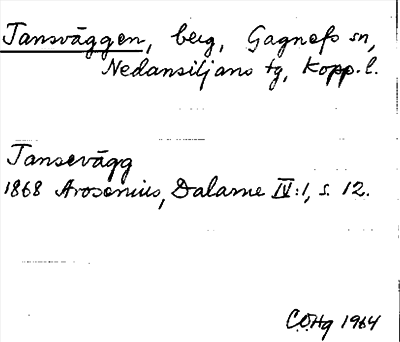 Tansväggen, berg, Gagnefs sn,
Nedansiljans tg, Kopp. l.
Tansevägg
1868 Arosenius, Dalarne IV:1, s. 12.
COHg 1964